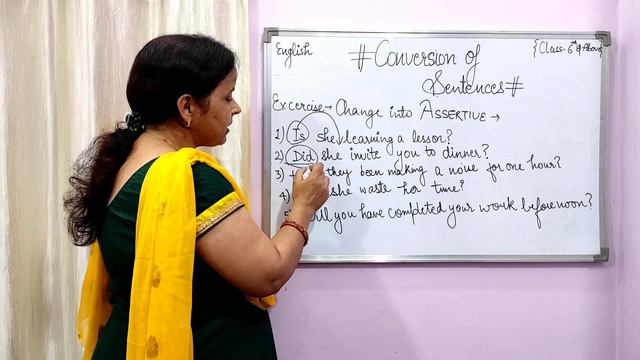 English
# Conversion of
Sentences #
{Class-6th & Above}
Excercise → Change into ASSERTIVE →
1) Is she learning a lesson?
2) Did she invite you to dinner?
3) they been making a noise for one hour?
4) she waste her time?
you have completed your work before noon?